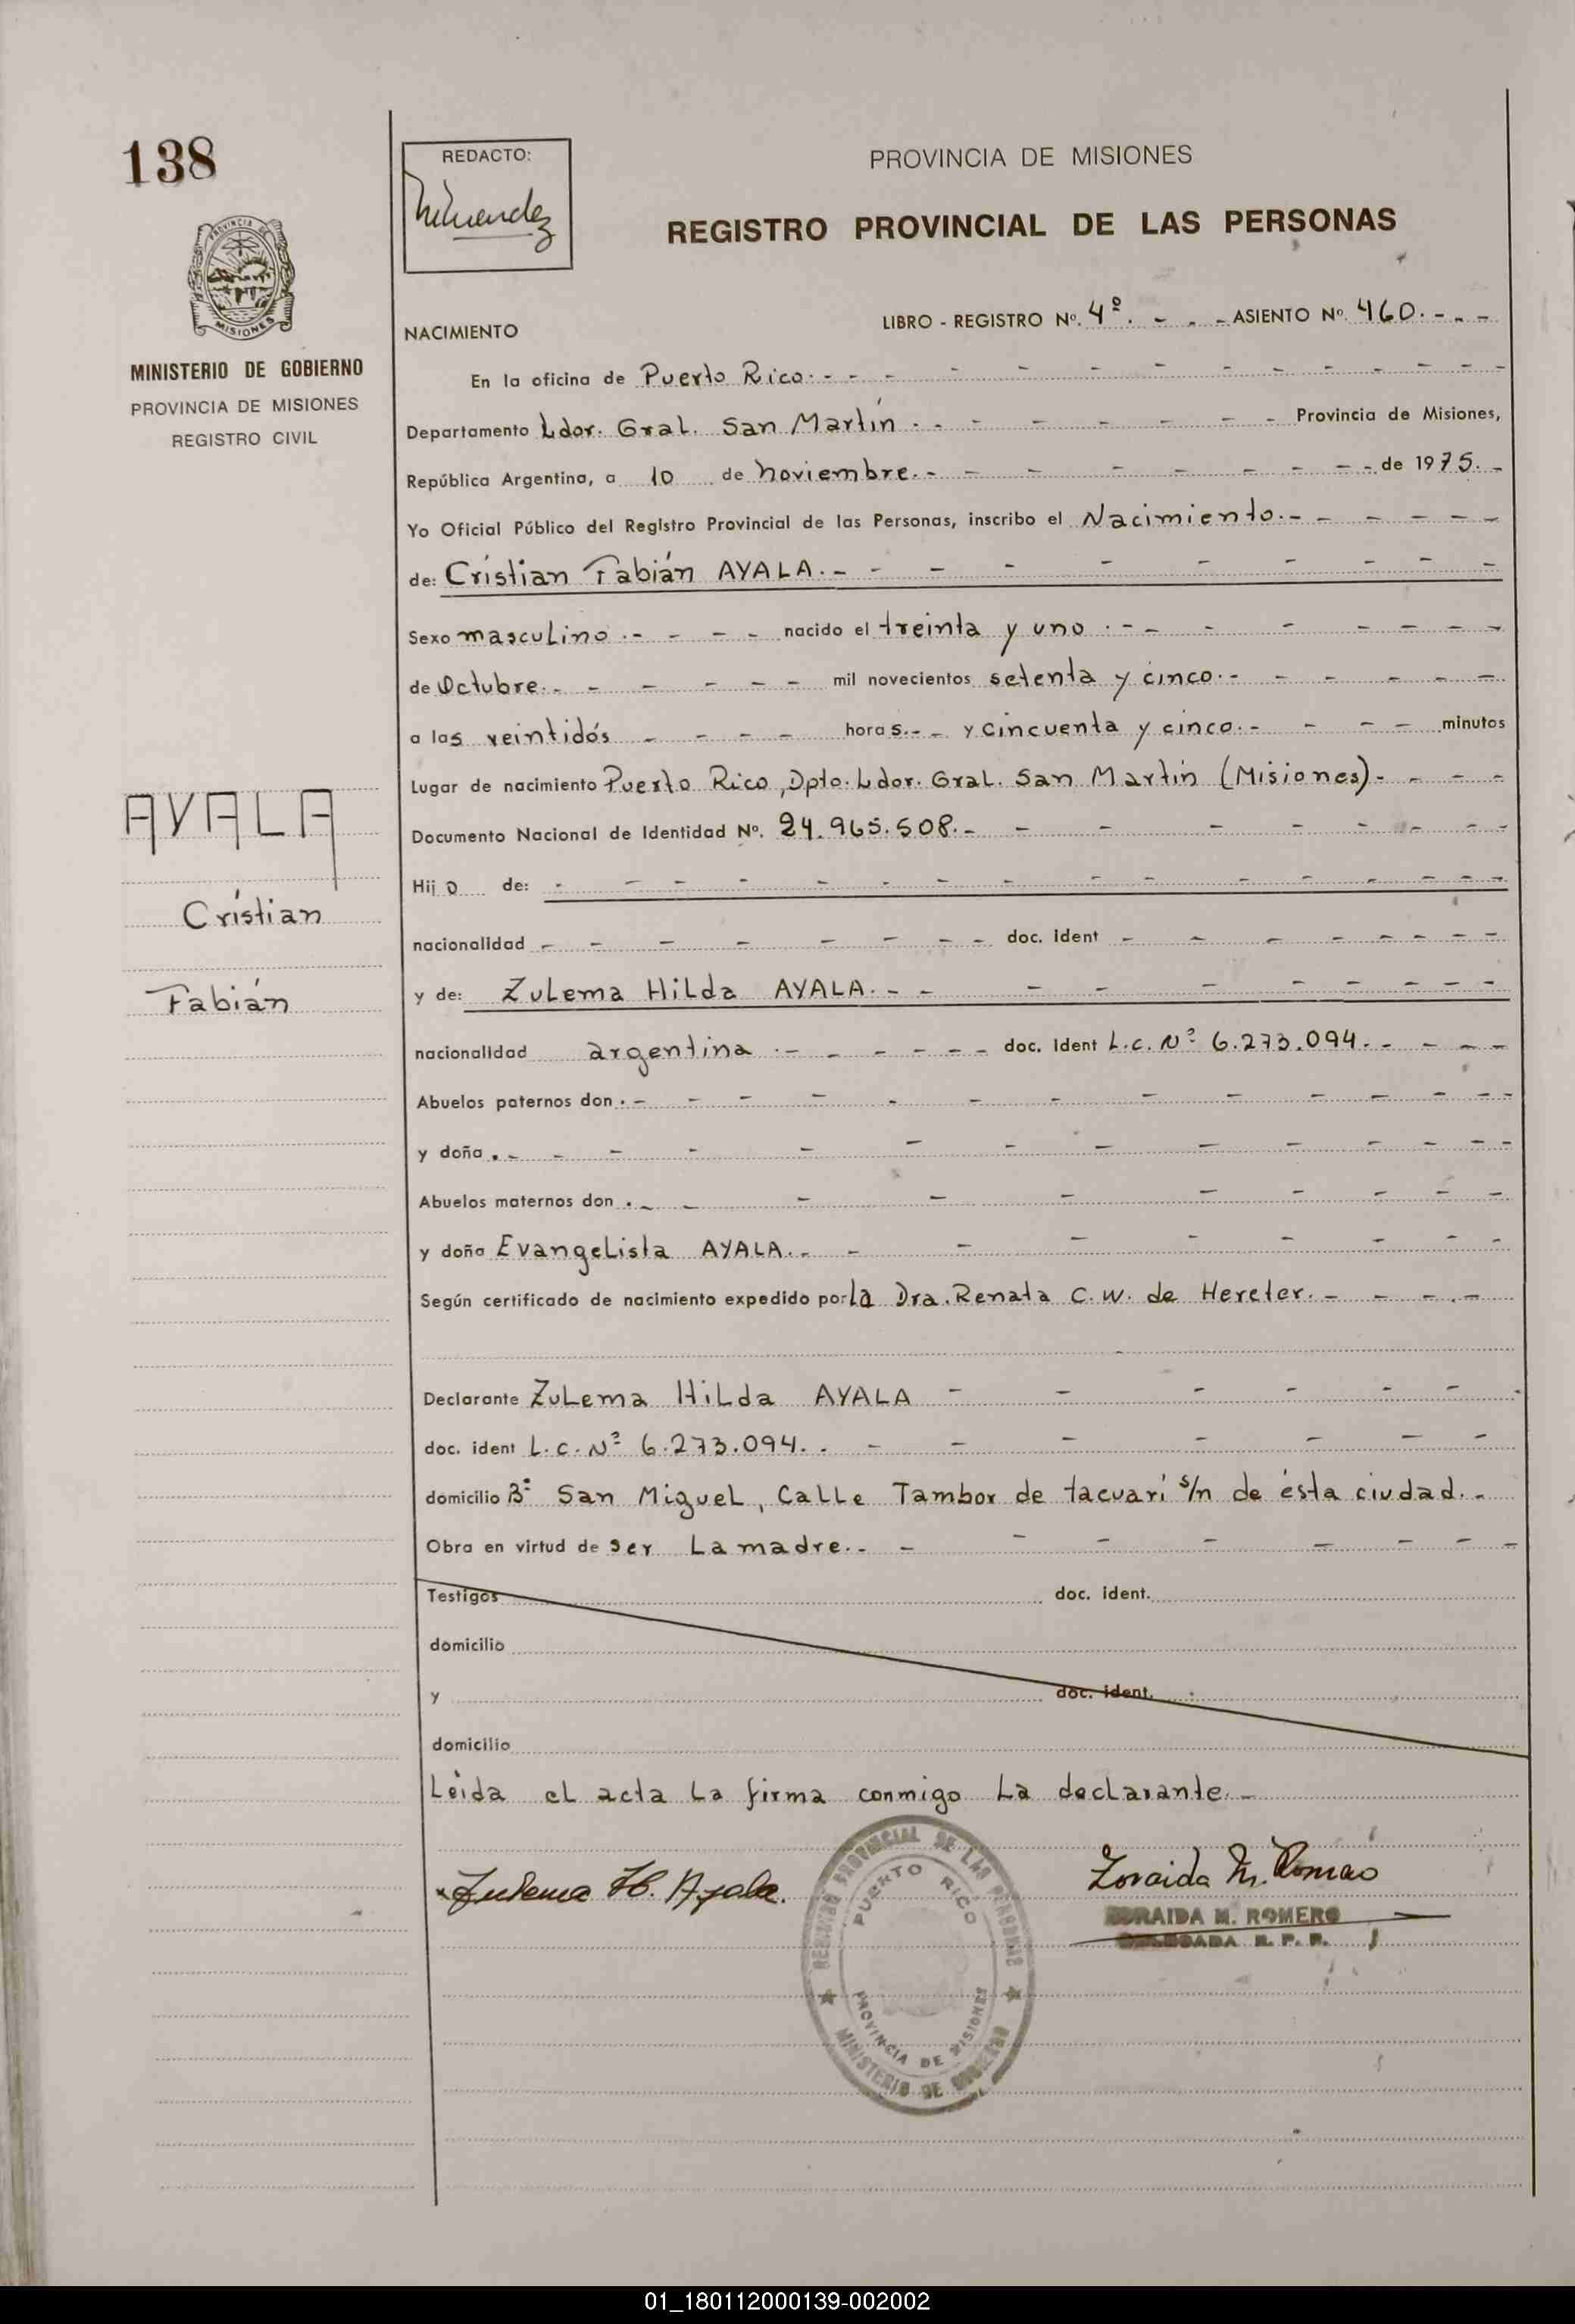 138
REDACTO:
PROVINCIA DE MISIONES
REGISTRO PROVINCIAL DE LAS PERSONAS
PROVINCIA DE
MISIONES
MINISTERIO DE GOBIERNO
PROVINCIA DE MISIONES
REGISTRO CIVIL
NACIMIENTO
LIBRO - REGISTRO Nº. 4º. - - - ASIENTO Nº. 460. - - -
En la oficina de Puerto Rico. - - - - - - - - - - - - -
Departamento Ldor. Gral. San Martín. - - - - - - - - Provincia de Misiones,
República Argentina, a 10 de noviembre. - - - - - - - - - de 1975. -
Yo Oficial Público del Registro Provincial de las Personas, inscribo el Nacimiento. - - - - - -
de: Cristian Fabián AYALA. - - - - - - - - - -
Sexo masculino. - - - - nacido el treinta y uno. - - - - - - - -
de Octubre. - - - - - - mil novecientos setenta y cinco. - - - - - -
a las veintidós - - - - horas. - - y cincuenta y cinco. - - - - minutos
Lugar de nacimiento Puerto Rico, Dpto. Ldor. Gral. San Martín (Misiones) - - - -
Documento Nacional de Identidad Nº. 24.965.508. - - - - - - - -
Hijo de: - - - - - - - - - - - - - - - -
nacionalidad - - - - - - - - doc. ident - - - - - - - -
y de: Zulema Hilda AYALA. - - - - - - - - - -
nacionalidad argentina. - - - - - - doc. ident L.c. Nº 6.273.094. - - - -
Abuelos paternos don. - - - - - - - - - - - - - -
y doña. - - - - - - - - - - - - - -
Abuelos maternos don. - - - - - - - - - -
y doña Evangelista AYALA. - - - - - - - - -
Según certificado de nacimiento expedido por la Dra. Renata C. W. de Hereter. - - - - -
Declarante Zulema Hilda AYALA - - - - - - -
doc. ident L.c. Nº 6.273.094. . - - - - - - -
domicilio Bº San Miguel, Calle Tambor de tacuarí s/n de ésta ciudad. -
Obra en virtud de ser La madre. - - - - - - - - -
Testigos doc. ident.
domicilio
y doc. ident.
domicilio
Leída el acta La firma conmigo La declarante. -
AYALA
Cristian
Fabián
Zulema H. Ayala.
Zoraida M. Romero
ZORAIDA M. ROMERO
DELEGADA R. P. P.
REGISTRO PROVINCIAL DE LAS PERSONAS
PUERTO RICO
PROVINCIA DE MISIONES
MINISTERIO DE GOBIERNO
01_180112000139-002002